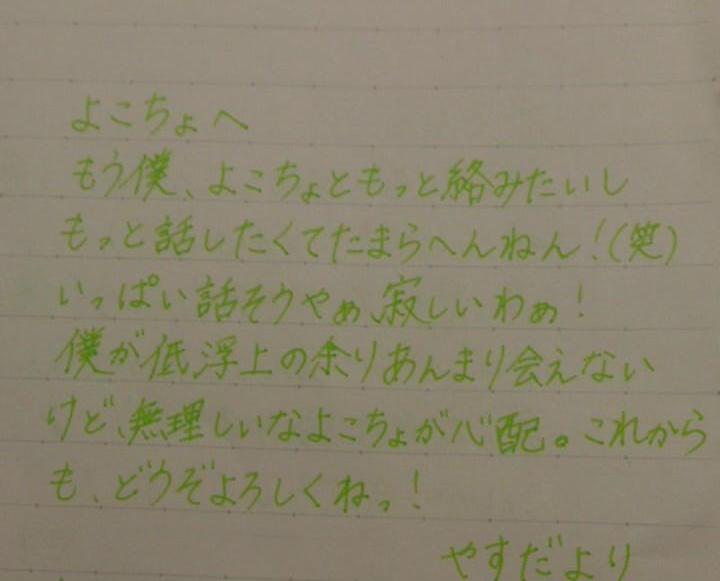 よこちょへ
もう僕、よこちょともっと絡みたいし
もっと話したくてたまらへんねん！(笑)
いっぱい話そうやぁ、寂しいわぁ！
僕が低浮上の余りあんまり会えない
けど、無理しいなよこちょが心配。これから
も、どうぞよろしくねっ！
やすだより